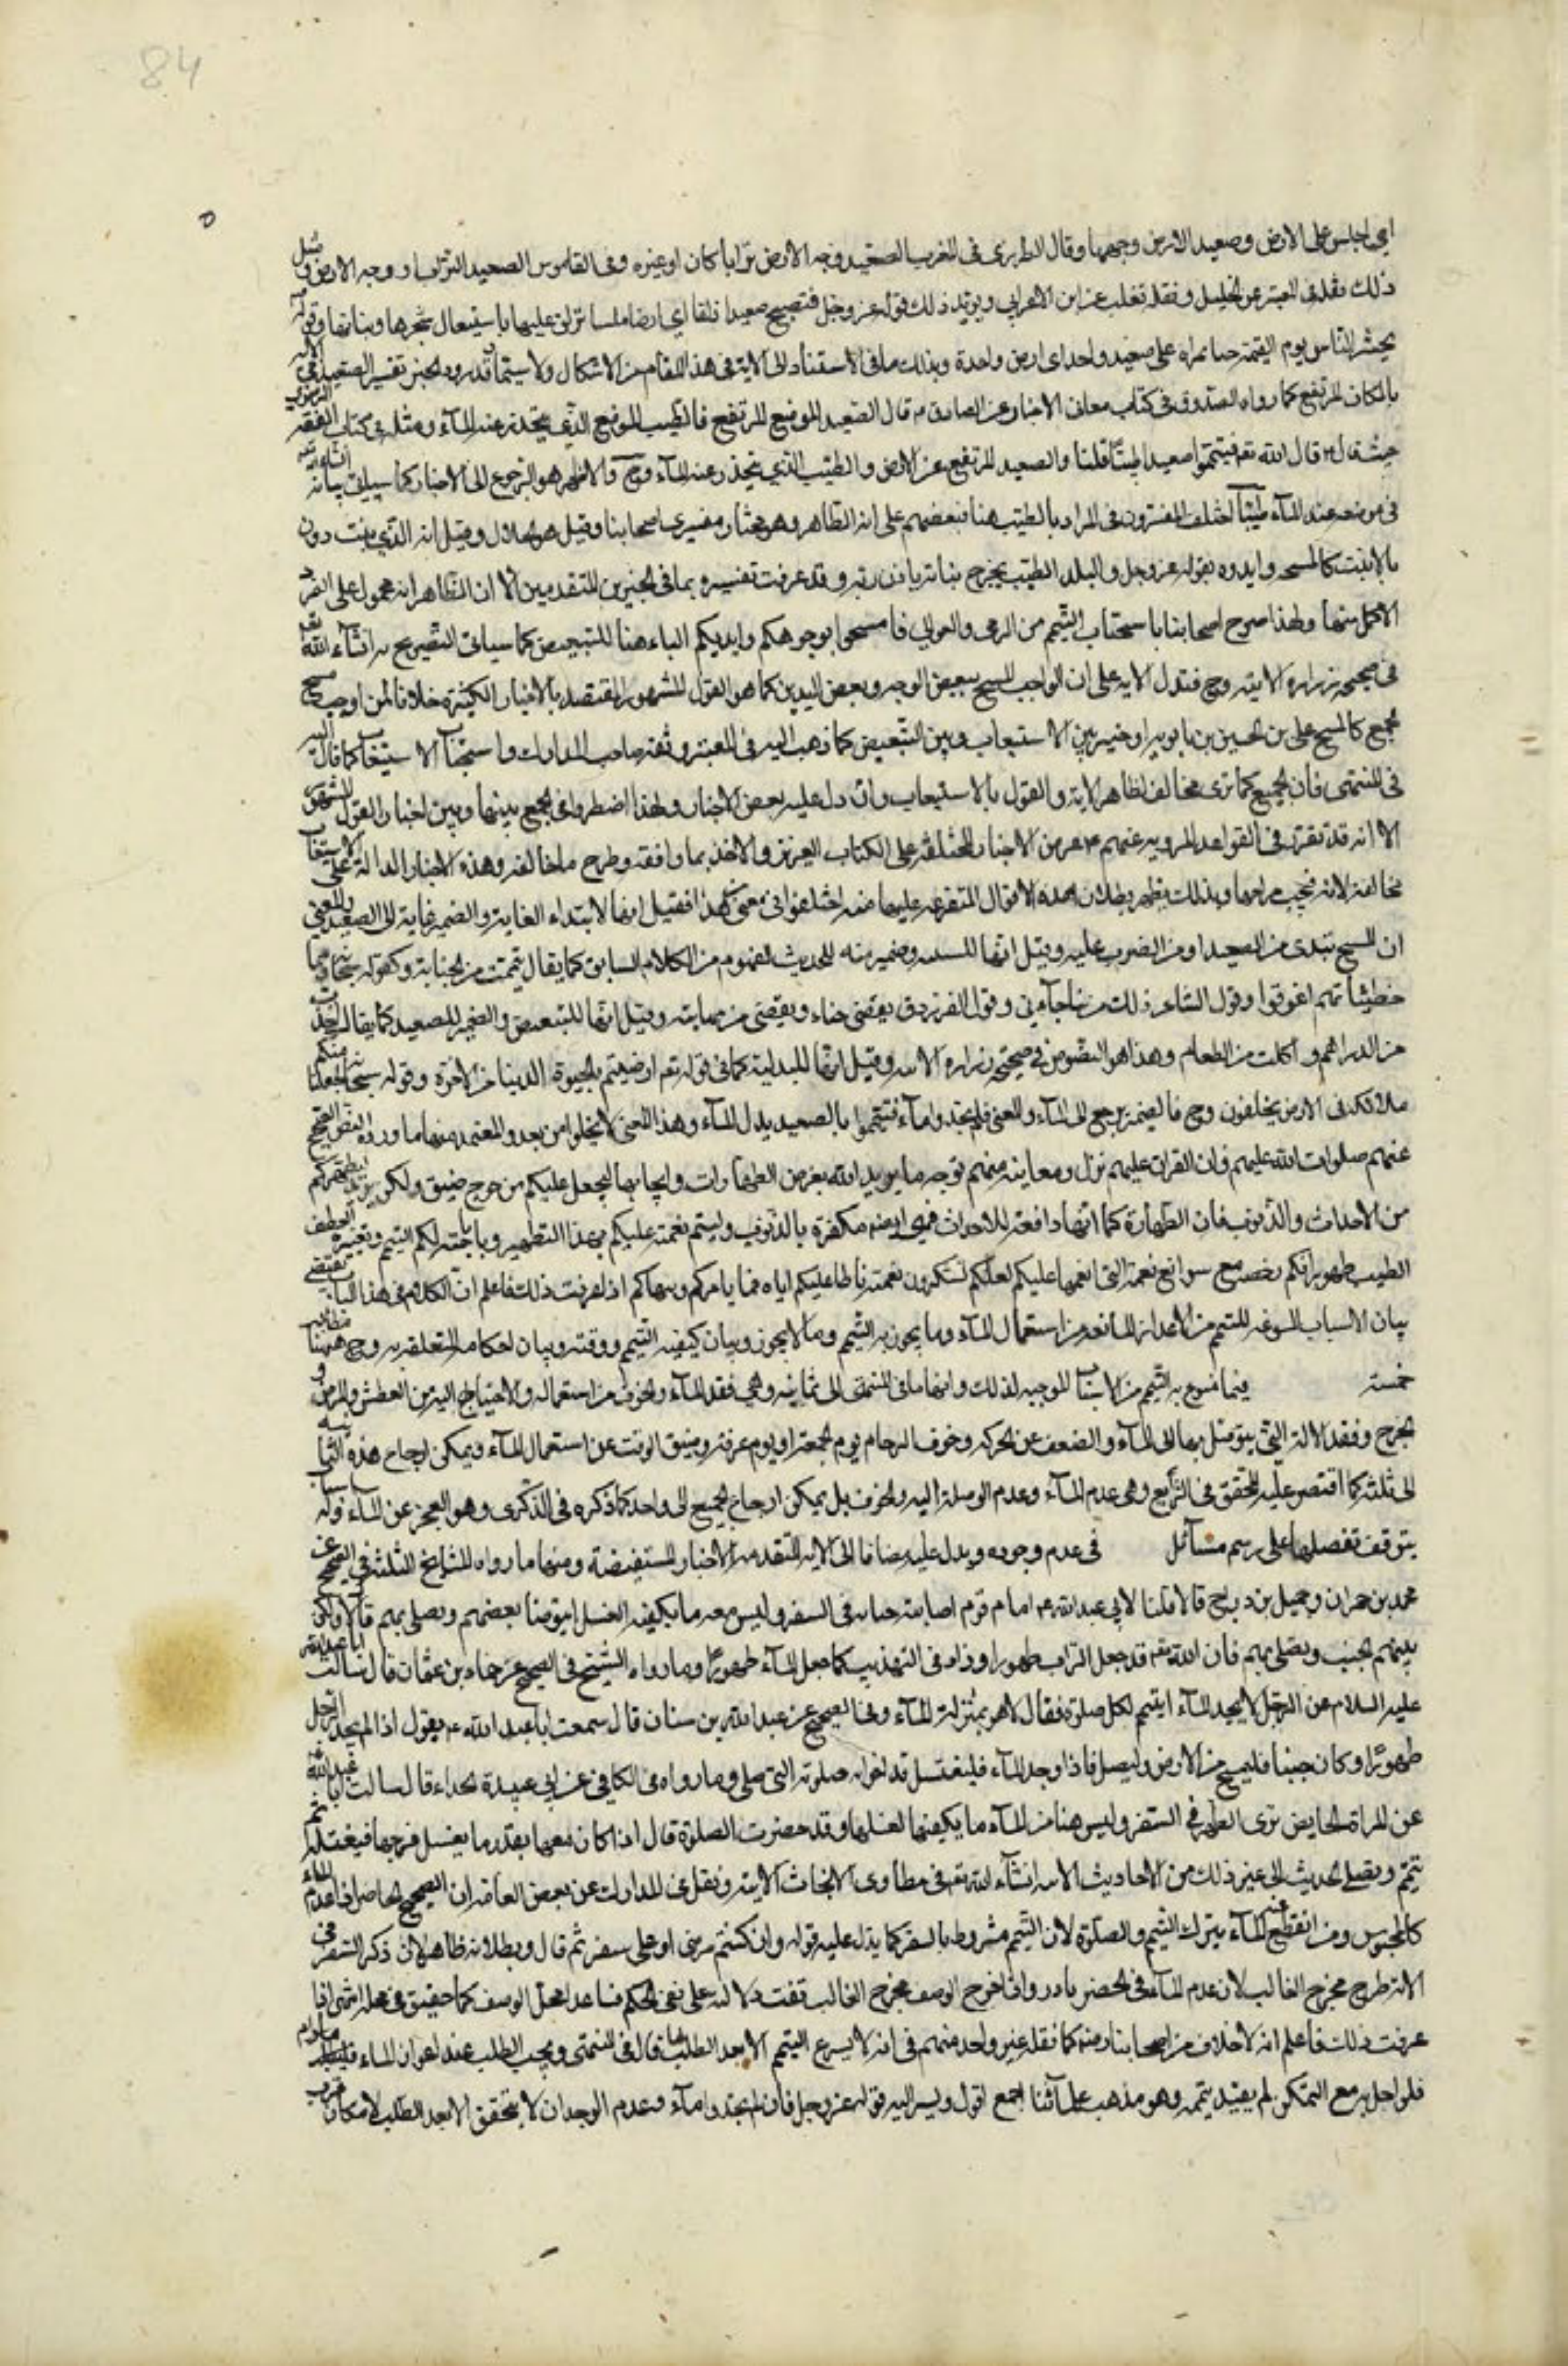 84
اي اجلس على الارض وصعيد الارض وجهها وقال المطرزي في المغرب الصعيد وجه الارض ترابا كان او غيره وفي القاموس الصعيد التراب او وجه الارض ومثل
ذلك نقله في المعتبر عن الخليل ونقله ثعلب عن ابن الاعرابي ويؤيد ذلك قوله عز وجل فتصبح صعيدا زلقا اي ارضا ملسا تزلق عليها باستيصال شجرها ونباتها وقوله
يحشر الناس يوم القيمة حفاة عراة على صعيد واحد اي ارض واحدة وبذلك ما في الاستناد الى الاية في هذا المقام من الاشكال ولا سيما قد ورد الخبر تفسير الصعيد في الاية
بالمكان المرتفع كما رواه الصدوق في كتاب معاني الاخبار عن الصادق ع قال الصعيد الموضع المرتفع والطيب الموضع الذي ينحدر عنه الماء ومثله في كتاب الفقه الرضوي
حيث قال ع قال الله تعم فتيمموا صعيدا طيبا والصعيد المرتفع عن الارض والطيب الذي ينحدر عنه الماء وح فالاظهر هو الرجوع الى الاخبار كما سيأتي بيانه انشاء الله
في موضعه عند الماء طيبا اختلف المفسرون في المراد بالطيب هنا فبعضهم على انه الطاهر وهو مختار مفسري اصحابنا وقيل هو الحلال وقيل انه الذي ينبت دون
ما لا ينبت كالسبخة وايدوه بقوله عز وجل والبلد الطيب يخرج نباته باذن ربه وقد عرفت تفسيره بما في الخبرين المتقدمين الا ان الظاهر انه محمول على الفرد
الاكمل منها ولهذا صرح اصحابنا باستحباب التيمم من الربى والعوالي فامسحوا بوجوهكم وايديكم الباء هنا للتبعيض كما سيأتي التصريح به انشاء الله تعالى
في صحيحة زرارة الاتية وح فتدل الاية على ان الواجب المسح ببعض الوجه وبعض اليدين كما هو القول المشهور المعتضد بالاخبار الكثيرة خلافا لمن اوجب مسح
الجميع كالشيخ علي بن الحسين بن بابويه او خير بين الاستيعاب وبين التبعيض كما ذهب اليه في المعتبر وتبعه صاحب المدارك واستحباب الاستيعاب كما قال اليه
في المنتهى فان الجميع كما ترى مخالف لظاهر الاية والقول بالاستيعاب وان دل عليه بعض الاخبار ولهذا اضطروا في الجمع بينها وبين اخبار القول المشهور
الا انه قد تقرر في القواعد المروية عنهم ع عرض الاخبار المختلفة على الكتاب العزيز والاخذ بما وافقه وطرح ما خالفه وهذه الاخبار الدالة على الاستيعاب
مخالفة لانه فيجب طرحها وبذلك يظهر بطلان هذه الاقوال المتفرعة عليها منه اختلفوا في معنى من هذا فقيل انها لابتداء الغاية والضمير غاية الى الصعيد والمعنى
ان المسح يبتدى من الصعيد او من الضرب عليه وقيل انها للسببية وضمير منه للحدث المفهوم من الكلام السابق كما يقال تيممت من الجنابة وكقوله سبحانه مما
خطيئاتهم اغرقوا وقول الشاعر ذلك من نبأ جاءني وقول الفرزدق يغضي حياء ويغضى من مهابته وقيل انها للتبعيض والضمير للصعيد كما يقال اخذت
من الدراهم واكلت من الطعام وهذا هو المنصوص في صحيحة زرارة الاتية وقيل انها للبدلية كما في قوله تعم ارضيتم بالحيوة الدنيا من الاخرة وقوله سبحانه لجعلنا منكم
ملائكة في الارض يخلفون وح فالضمير يرجع الى الماء والمعنى فلم تجدوا ماء فتيمموا بالصعيد بدل الماء وهذا المعنى لا يخلو من بعد والمعتمد منها ما ورد به النص الصحيح
عنهم صلوات الله عليهم فان القران عليهم نزل ومعانيه منهم تؤخذ ما يريد الله بفرض الطهارات وايجابها ليجعل عليكم من حرج ضيق ولكن يريد ليطهركم
من الاحداث والذنوب فان الطهارة كما انها دافعة للاحداث فهي ايضا مكفرة بالذنوب وليتم نعمته عليكم بهذا التطهير وباباحته لكم التيمم وتصييره
الطيب طهورا لكم رخصة مع سوابغ نعمه التي انعمها عليكم لعلكم تشكرون نعمته باطاعتكم اياه فيما يامركم وينهاكم اذا عرفت ذلك فاعلم ان الكلام في هذا الباب يقتضي
بيان الاسباب المسوغة للتيمم من الاعذار المانعة من استعمال الماء وما يجوز به التيمم وما لا يجوز وبيان كيفية التيمم ووقته وبيان احكامه المتعلقة به وح فهنا مطالب
خمسة فيما يسوغ به التيمم من الاسباب الموجبة لذلك وانهاها في المنتهى الى ثمانية وهي فقد الماء والخوف من استعماله والاحتياج اليه من العطش والمرض و
الجرح وفقد الالة التي يتوصل بها الى الماء والضعف عن الحركة وخوف الزحام يوم الجمعة او يوم عرفة وضيق الوقت عن استعمال الماء ويمكن ارجاع هذه الثمانية
الى ثلثة كما اقتصر عليه المحقق في الشرايع وهي عدم الماء وعدم الوصلة اليه والخوف بل يمكن ارجاع الجميع الى واحد كما ذكره في الذكرى وهو العجز عن الماء قوله
يتوقف تفصيلها على رسم مسائل في عدم وجوده ويدل عليه مضافا الى الاية المتقدمة الاخبار المستفيضة ومنها ما رواه المشايخ الثلثة في الصحيح عن
محمد بن حمران وجميل بن دراج قالا قلنا لابي عبد الله ع امام قوم اصابته جنابة في السفر وليس معه ما يكفيه للغسل ايتوضأ بعضهم ويصلي بهم قال لا ولكن
يتيمم الجنب ويصلي بهم فان الله تعم قد جعل التراب طهورا وزاد في التهذيب كما جعل الماء طهورا وما رواه الشيخ في الصحيح عن حماد بن عثمان قال سالت ابا عبد الله
عليه السلام عن الرجل لا يجد الماء ايتيمم لكل صلوة فقال لا هو بمنزلة الماء وفي الصحيح عن عبد الله بن سنان قال سمعت ابا عبد الله ع يقول اذا لم يجد الرجل
طهورا وكان جنبا فليمسح من الارض وليصل فاذا وجد الماء فليغتسل وقد اجزأته صلوته التي صلى وما رواه في الكافي عن ابي عبيدة الحذاء قال سالت ابا عبد الله
عن المراة الحايض ترى الطهر في السفر وليس معها من الماء ما يكفيها لغسلها وقد حضرت الصلوة قال اذا كان معها بقدر ما يغسل فرجها فيغسله ثم
تتيمم وتصلي الحديث الى غير ذلك من الاحاديث الاتية انشاء الله تعم في مطاوي الابحاث الاتية ونقل في المدارك عن بعض العامة ان الصحيح الحاضر اذا عدم الماء
كالمحبوس ومن انقطع عنه الماء يترك التيمم والصلوة لان التيمم مشروط بالسفر كما يدل عليه قوله وان كنتم مرضى او على سفر ثم قال وبطلانه ظاهر لان ذكر السفر في
الاية خرج مخرج الغالب لان عدم الماء في الحضر نادر واذا خرج الوصف مخرج الغالب انتفت دلالته على نفي الحكم عما عدا محل الوصف كما حقق في محله انتهى اذا
عرفت ذلك فاعلم انه لا خلاف من اصحابنا رض كما نقله غير واحد منهم في انه لا يسوغ التيمم الا بعد الطلب قال في المنتهى ويجب الطلب عند اعواز الماء
فلو اخل به مع التمكن لم يعتد بتيممه وهو مذهب علمائنا اجمع اقول ويشير اليه قوله عز وجل فان لم تجدوا ماء وعدم الوجدان لا يتحقق الا بعد الطلب لامكان قرب